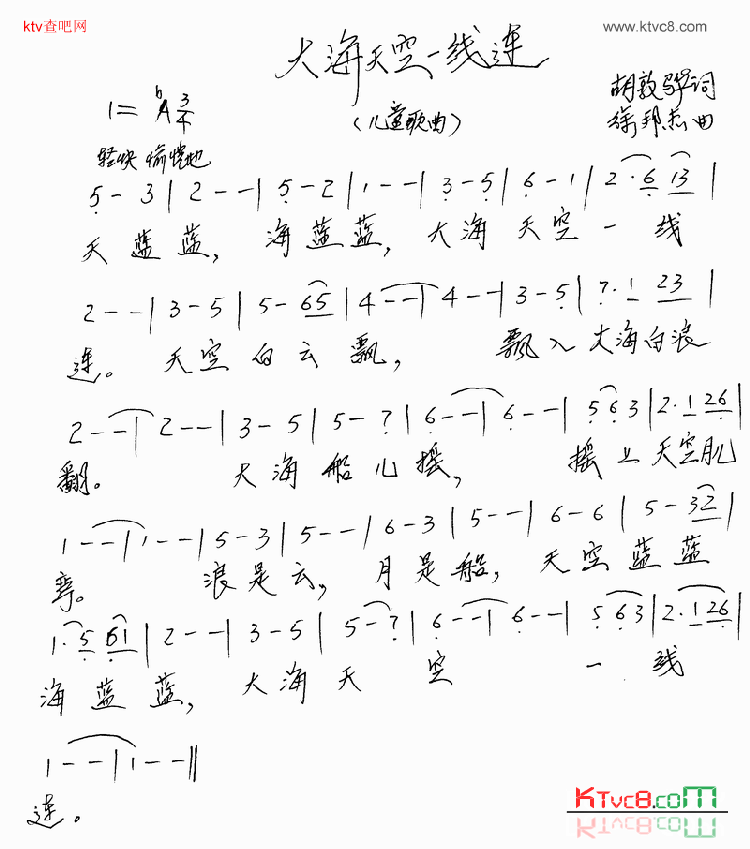 ktv查吧网
www.ktvc8.com
大海天空一线连
1=ᵇA 3/4
(儿童歌曲)
胡敦骅词
徐邦杰曲
轻快 愉悦地
5 - 3 | 2 - - | 5 - 2 | 1 - - | 3 - 5 | 6 - 1 | 2 · 6 13 |
天 蓝 蓝, 海 蓝 蓝, 大 海 天 空 一 线
2 - - | 3 - 5 | 5 - 65 | 4 - - | 4 - - | 3 - 5 | 7 · 1 23 |
连。 天 空 白 云 飘, 飘 入 大 海 白 浪
2 - - | 2 - - | 3 - 5 | 5 - 7 | 6 - - | 6 - - | 5 6 3 | 2 · 1 26 |
翻。 大 海 船 儿 摇, 摇 上 天 空 月儿
1 - - | 1 - - | 5 - 3 | 5 - - | 6 - 3 | 5 - - | 6 - 6 | 5 - 32 |
弯。 浪 是 云, 月 是 船, 天 空 蓝 蓝
1 · 5 61 | 2 - - | 3 - 5 | 5 - 7 | 6 - - | 6 - - | 5 63 | 2 · 1 26 |
海 蓝 蓝, 大 海 天 空 一 线
1 - - | 1 - - ‖
连。
KTvc8.com